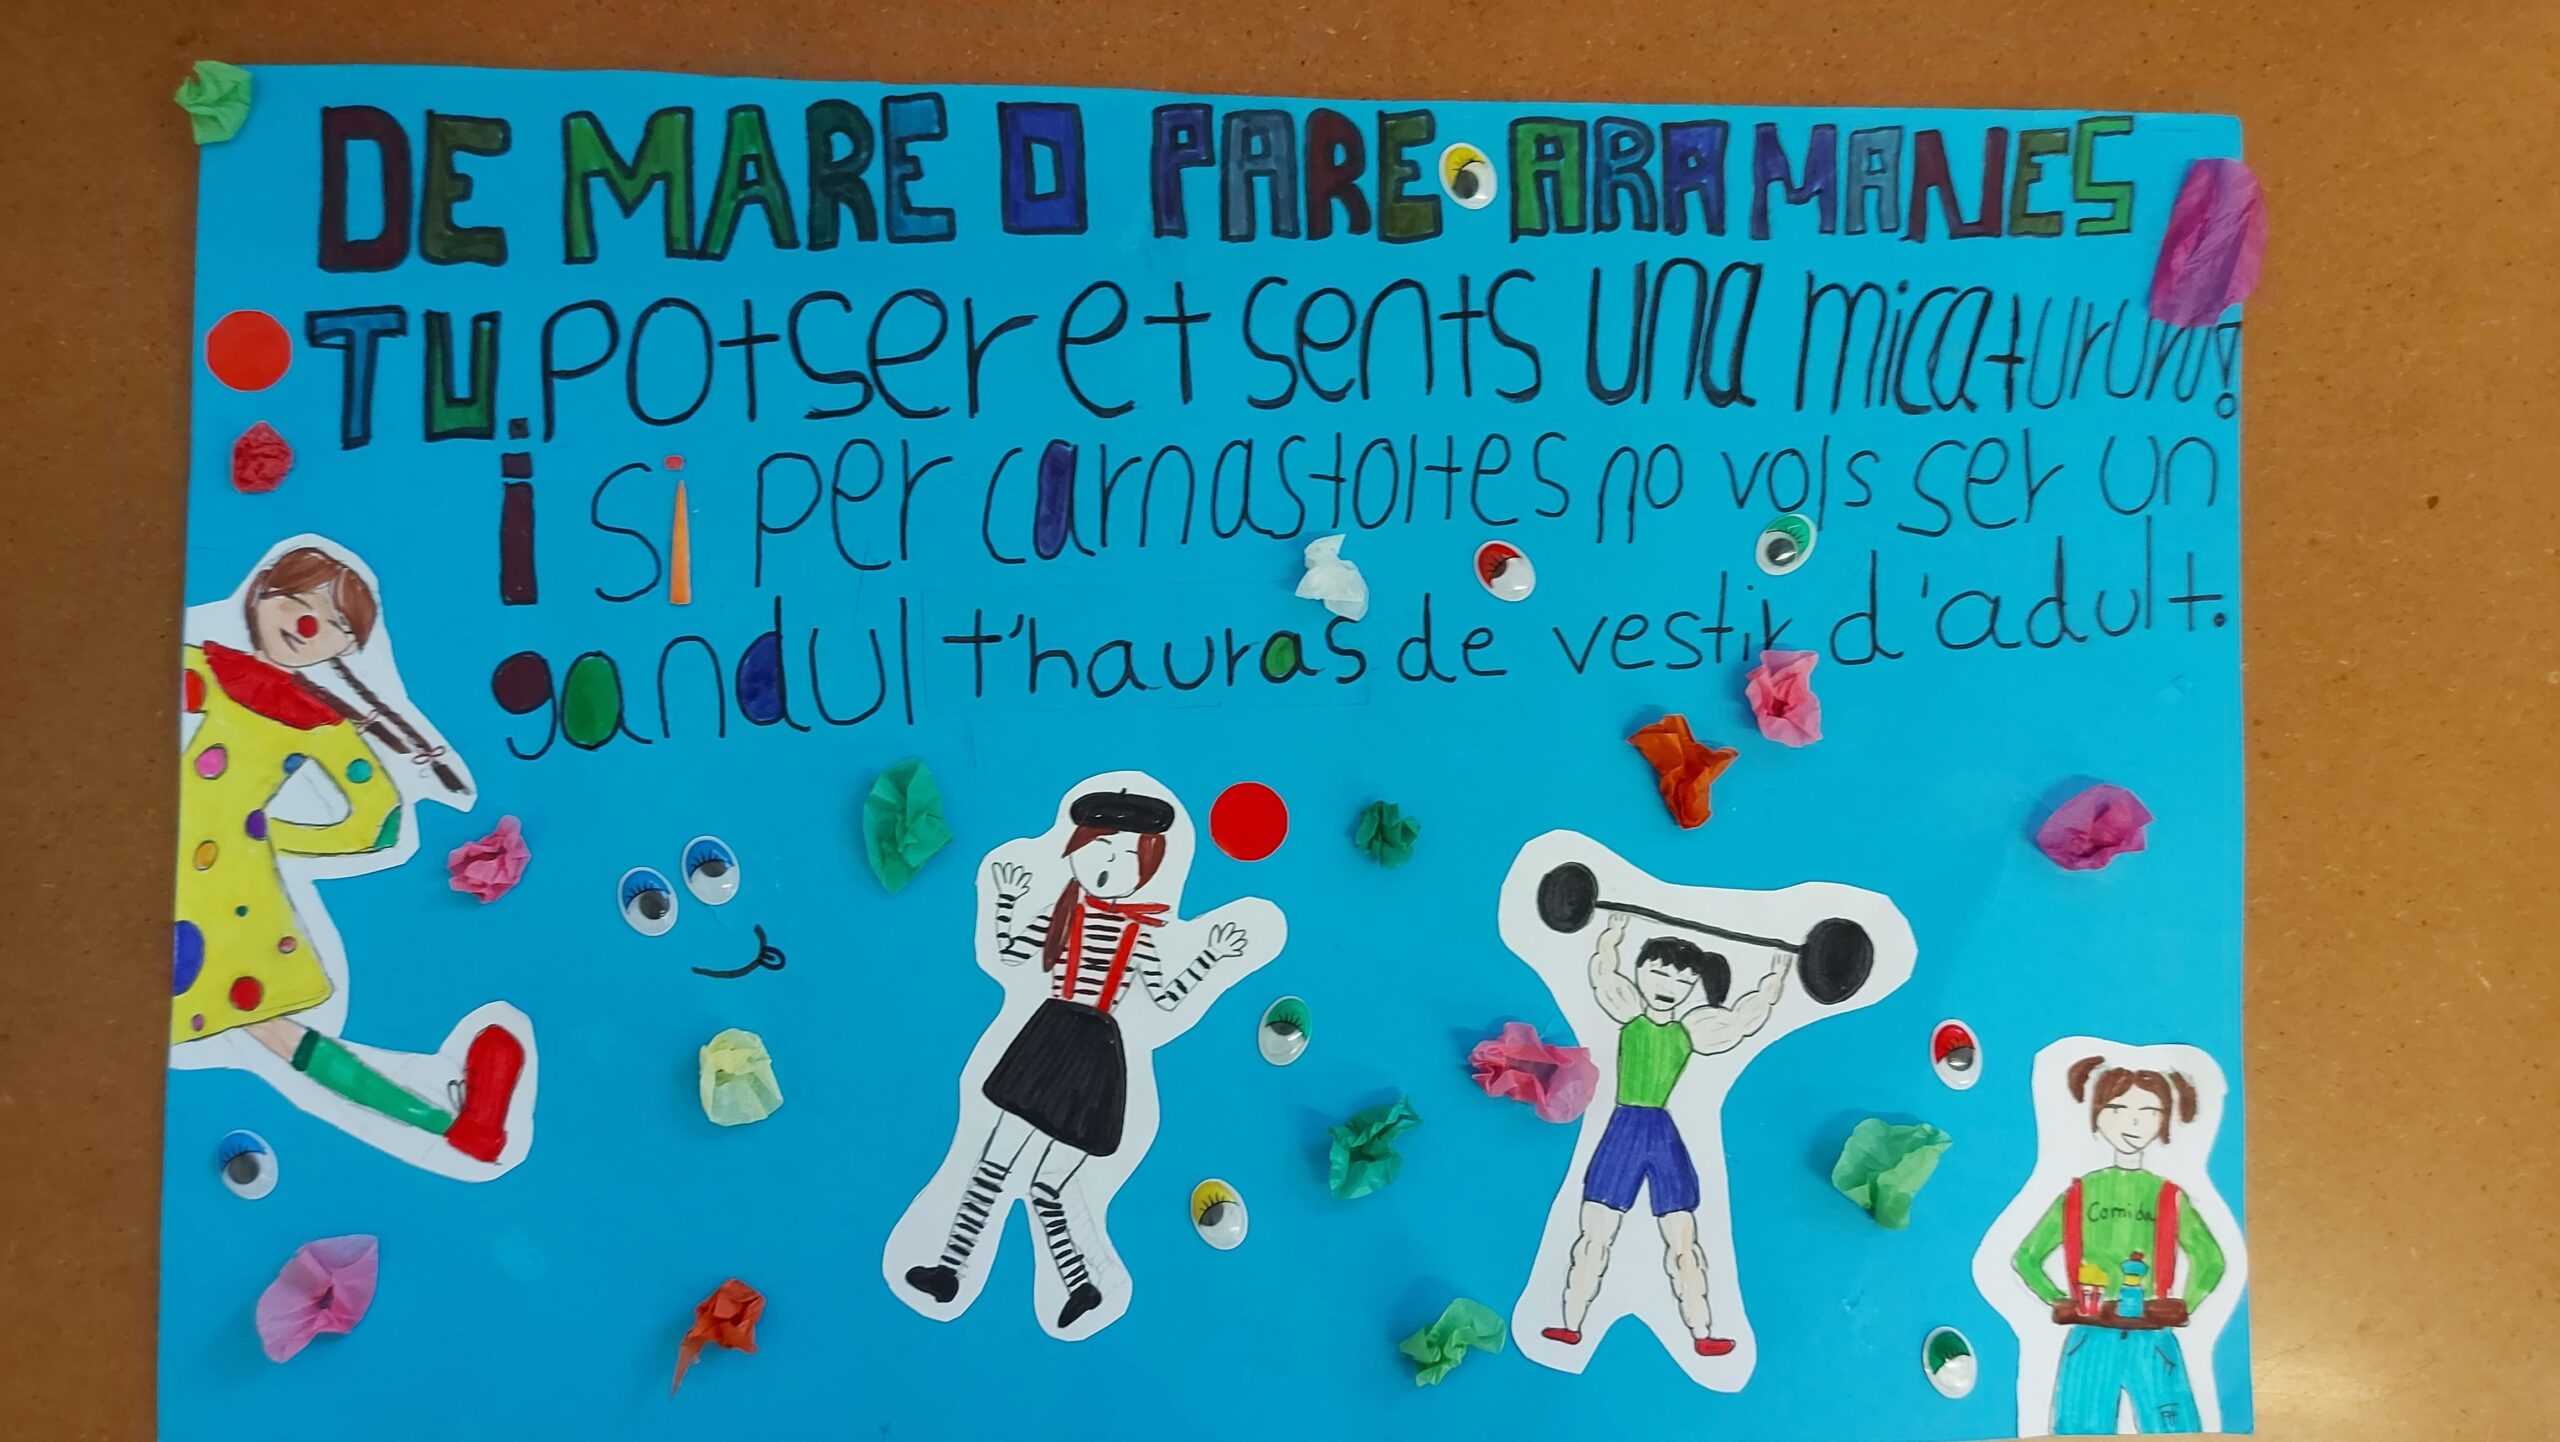 DE MARE O PARE ARA MANES
TU. potser et sents una mica tururut!
i si per carnastoltes no vols ser un
gandul t'hauras de vestir d'adult.
Comida